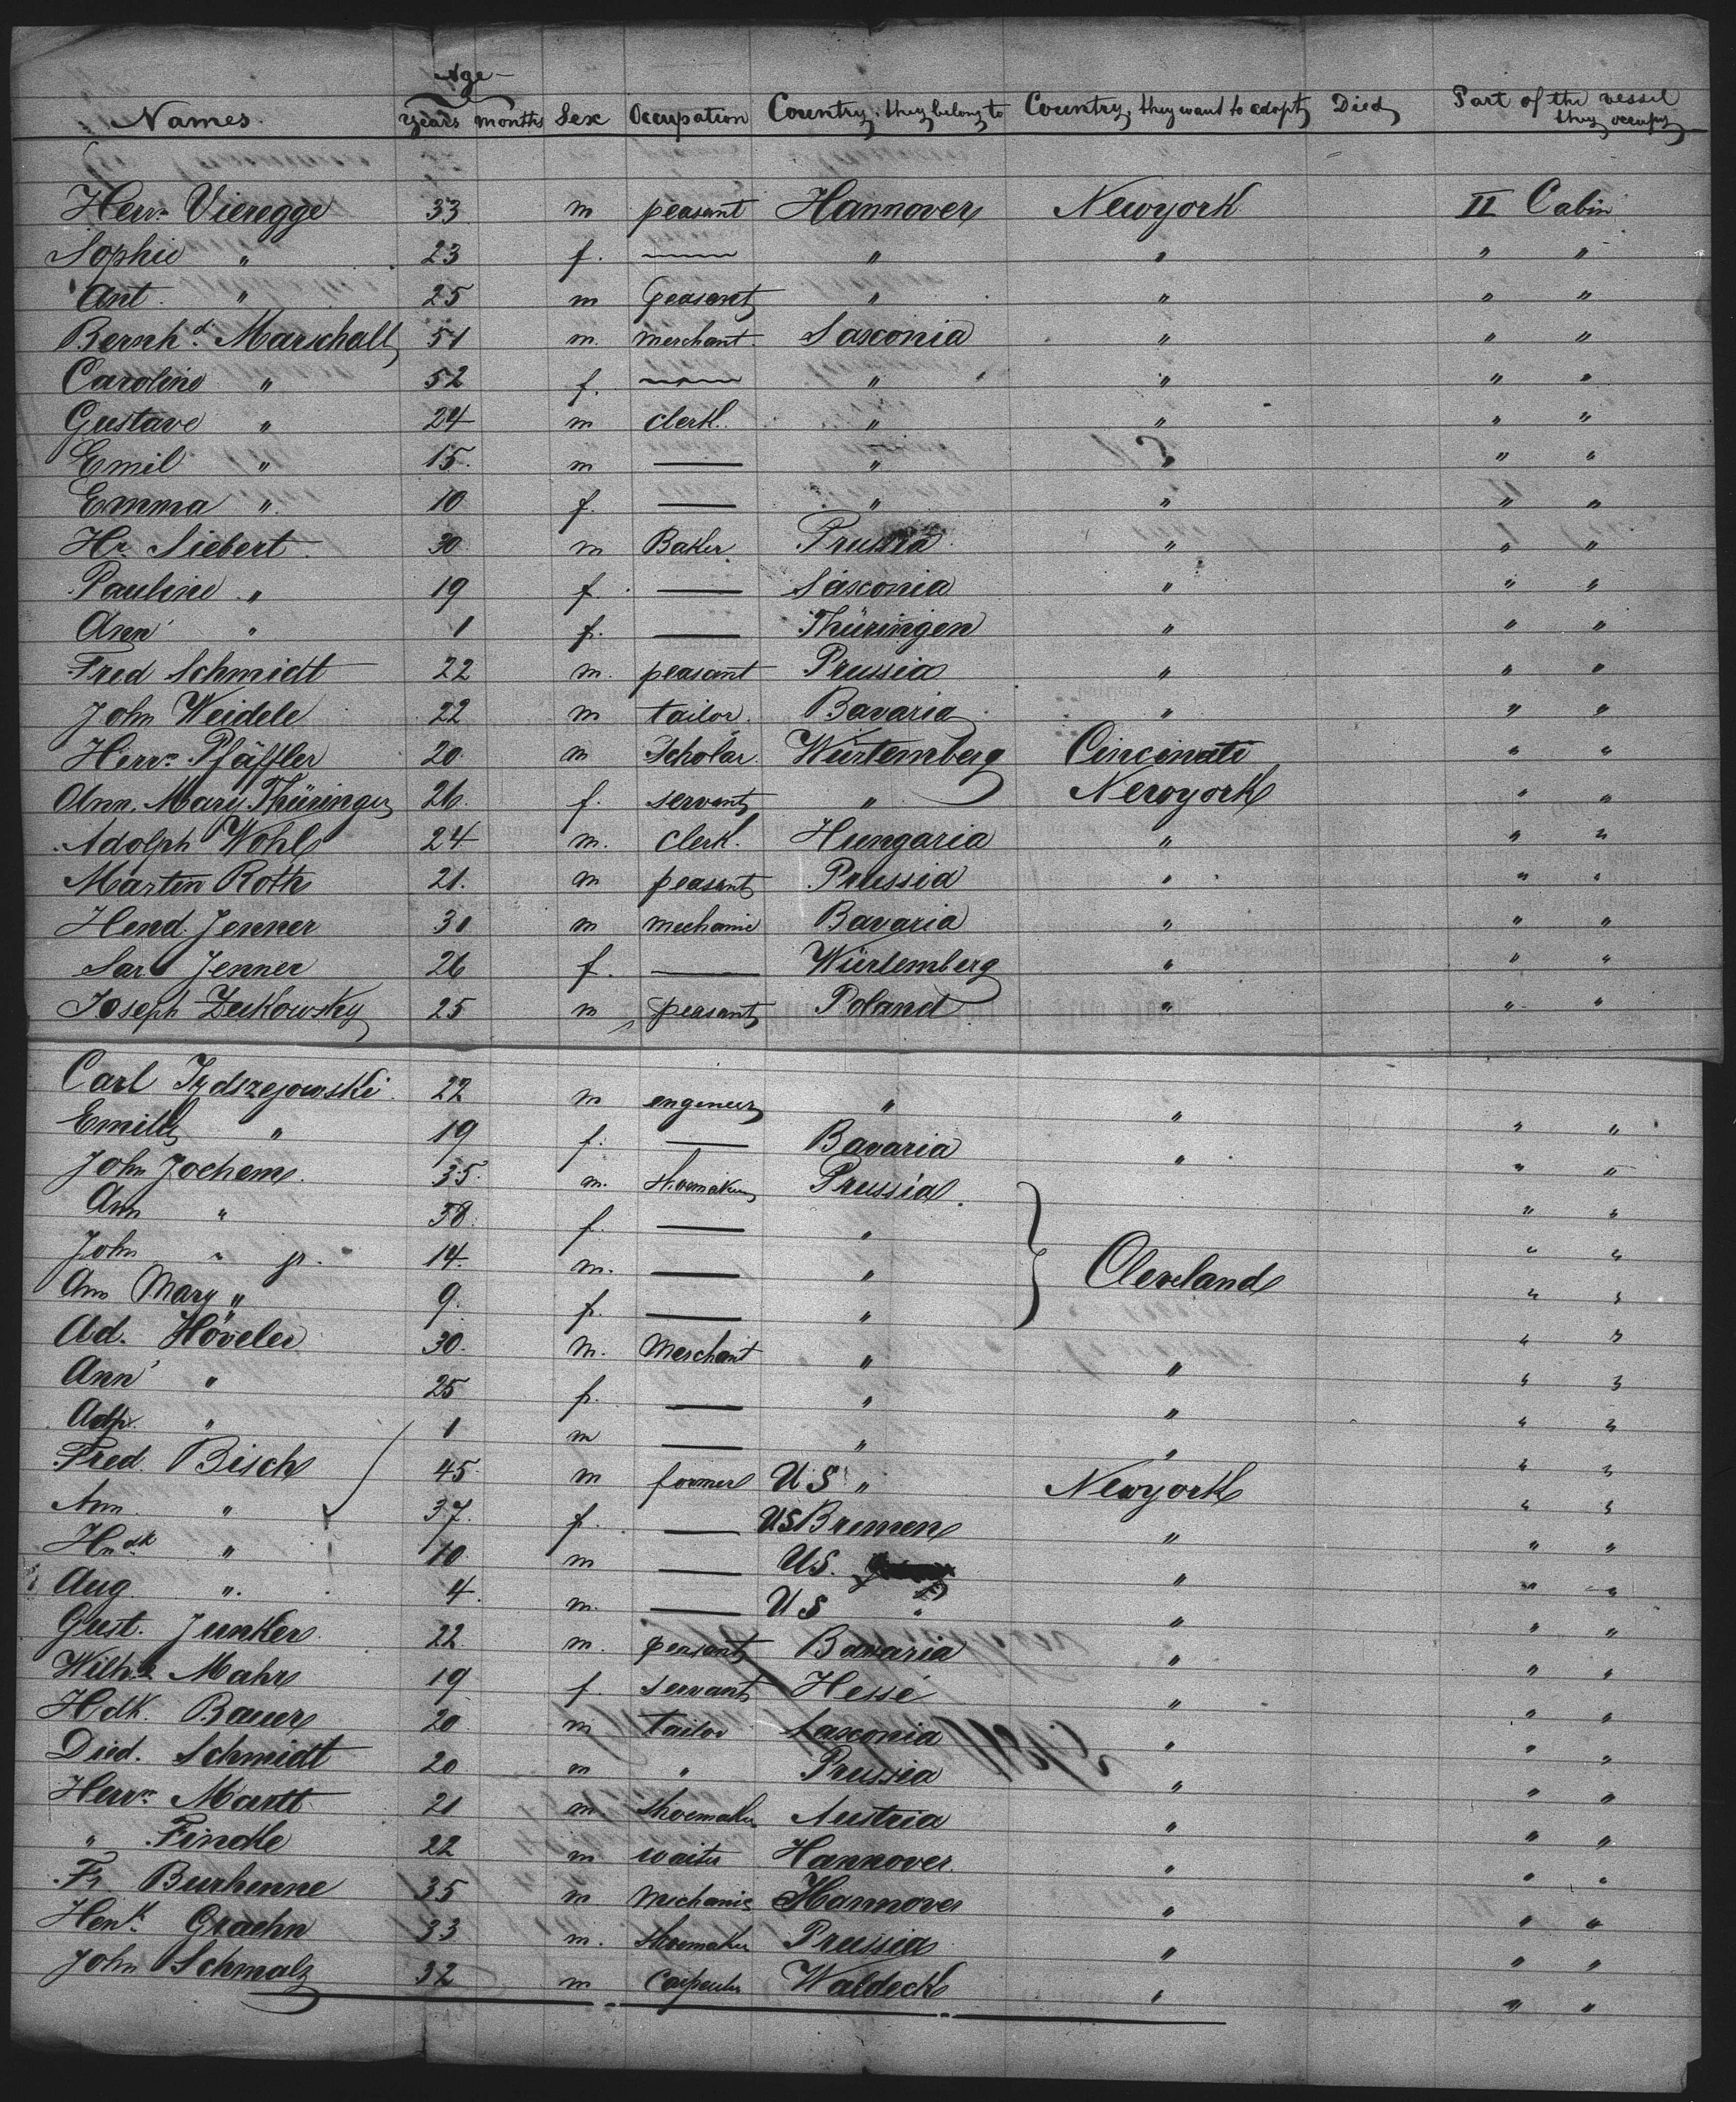 Age
Names. years months Sex Occupation Country, they belong to Country, they want to adopt Died Part of the vessel they occupy
Herm Vieregge 33 m peasant Hannover Newyork II Cabin
Sophie " 23 f. — " " " "
Ant. " 25 m peasant " " " "
Bernhd. Marschall 51 m. merchant. Saxconia " " "
Caroline " 52 f. — " " " "
Gustave " 24 m clerk. " " " "
Emil " 15. m — " " "
Emma " 10 f. — " " " "
Hr. Siebert. 30 m Baker Prussia " " "
Pauline " 19 f. — Sasconia " " "
Ann " 1 f. — Thüringen " " "
Fred Schmidt 22 m. peasant Prussia " " "
John Weidele 22 m tailor. Bavaria " " "
Herm. Pfäffler 20. m Scholar. Würtemberg Cincinati " "
Ann. Mary Thüringer 26. f. servant " Newyork " "
Adolph Wohl 24 m. clerk. Hungaria " " "
Martin Roth 21. m peasant Prussia " " "
Hend. Jenner 30 m mechanic Bavaria " " "
Sar. Jenner 26 f. — Würtemberg " " "
Joseph 25 m peasant Poland " " "
Carl 22 m engineer " " " "
Emilly " 19 f. — Bavaria " " "
John Jochem. 35. m. shoemaker Prussia. " "
Ann " 38. f. — " " "
John " jr. 14. m. — " Cleveland " "
Ann Mary " 9. f. — " " "
Ad. Höveler 30. m. Merchant " " " "
Ann " 25 f. — " " " "
Adp. " 1 m — " " " "
Fred. Bisch 45. m former US " Newyork " "
Ann. " 37. f. — US Bremen " " "
Hndk " 10. m — US. " " "
Aug. " 4. m. — US " " " "
Gust. Junker 22. m. peasant Bavaria " " "
Wilhe Mahr 19 f. servant Hesse " " "
Hdk. Bauer 20 m tailor Sasconia " " "
Died. Schmidt 20 m " Prussia " " "
Herm. Martt 21 m. shoemaker Austria " " "
" Findke 22 m waiter Hannover. " " "
Fr Burhenne 35 m mechanic Hannover " " "
Henk. Graehn 33 m. shoemaker Prussia " " "
John Schmalz 32 m Carpenter Waldeck " " "